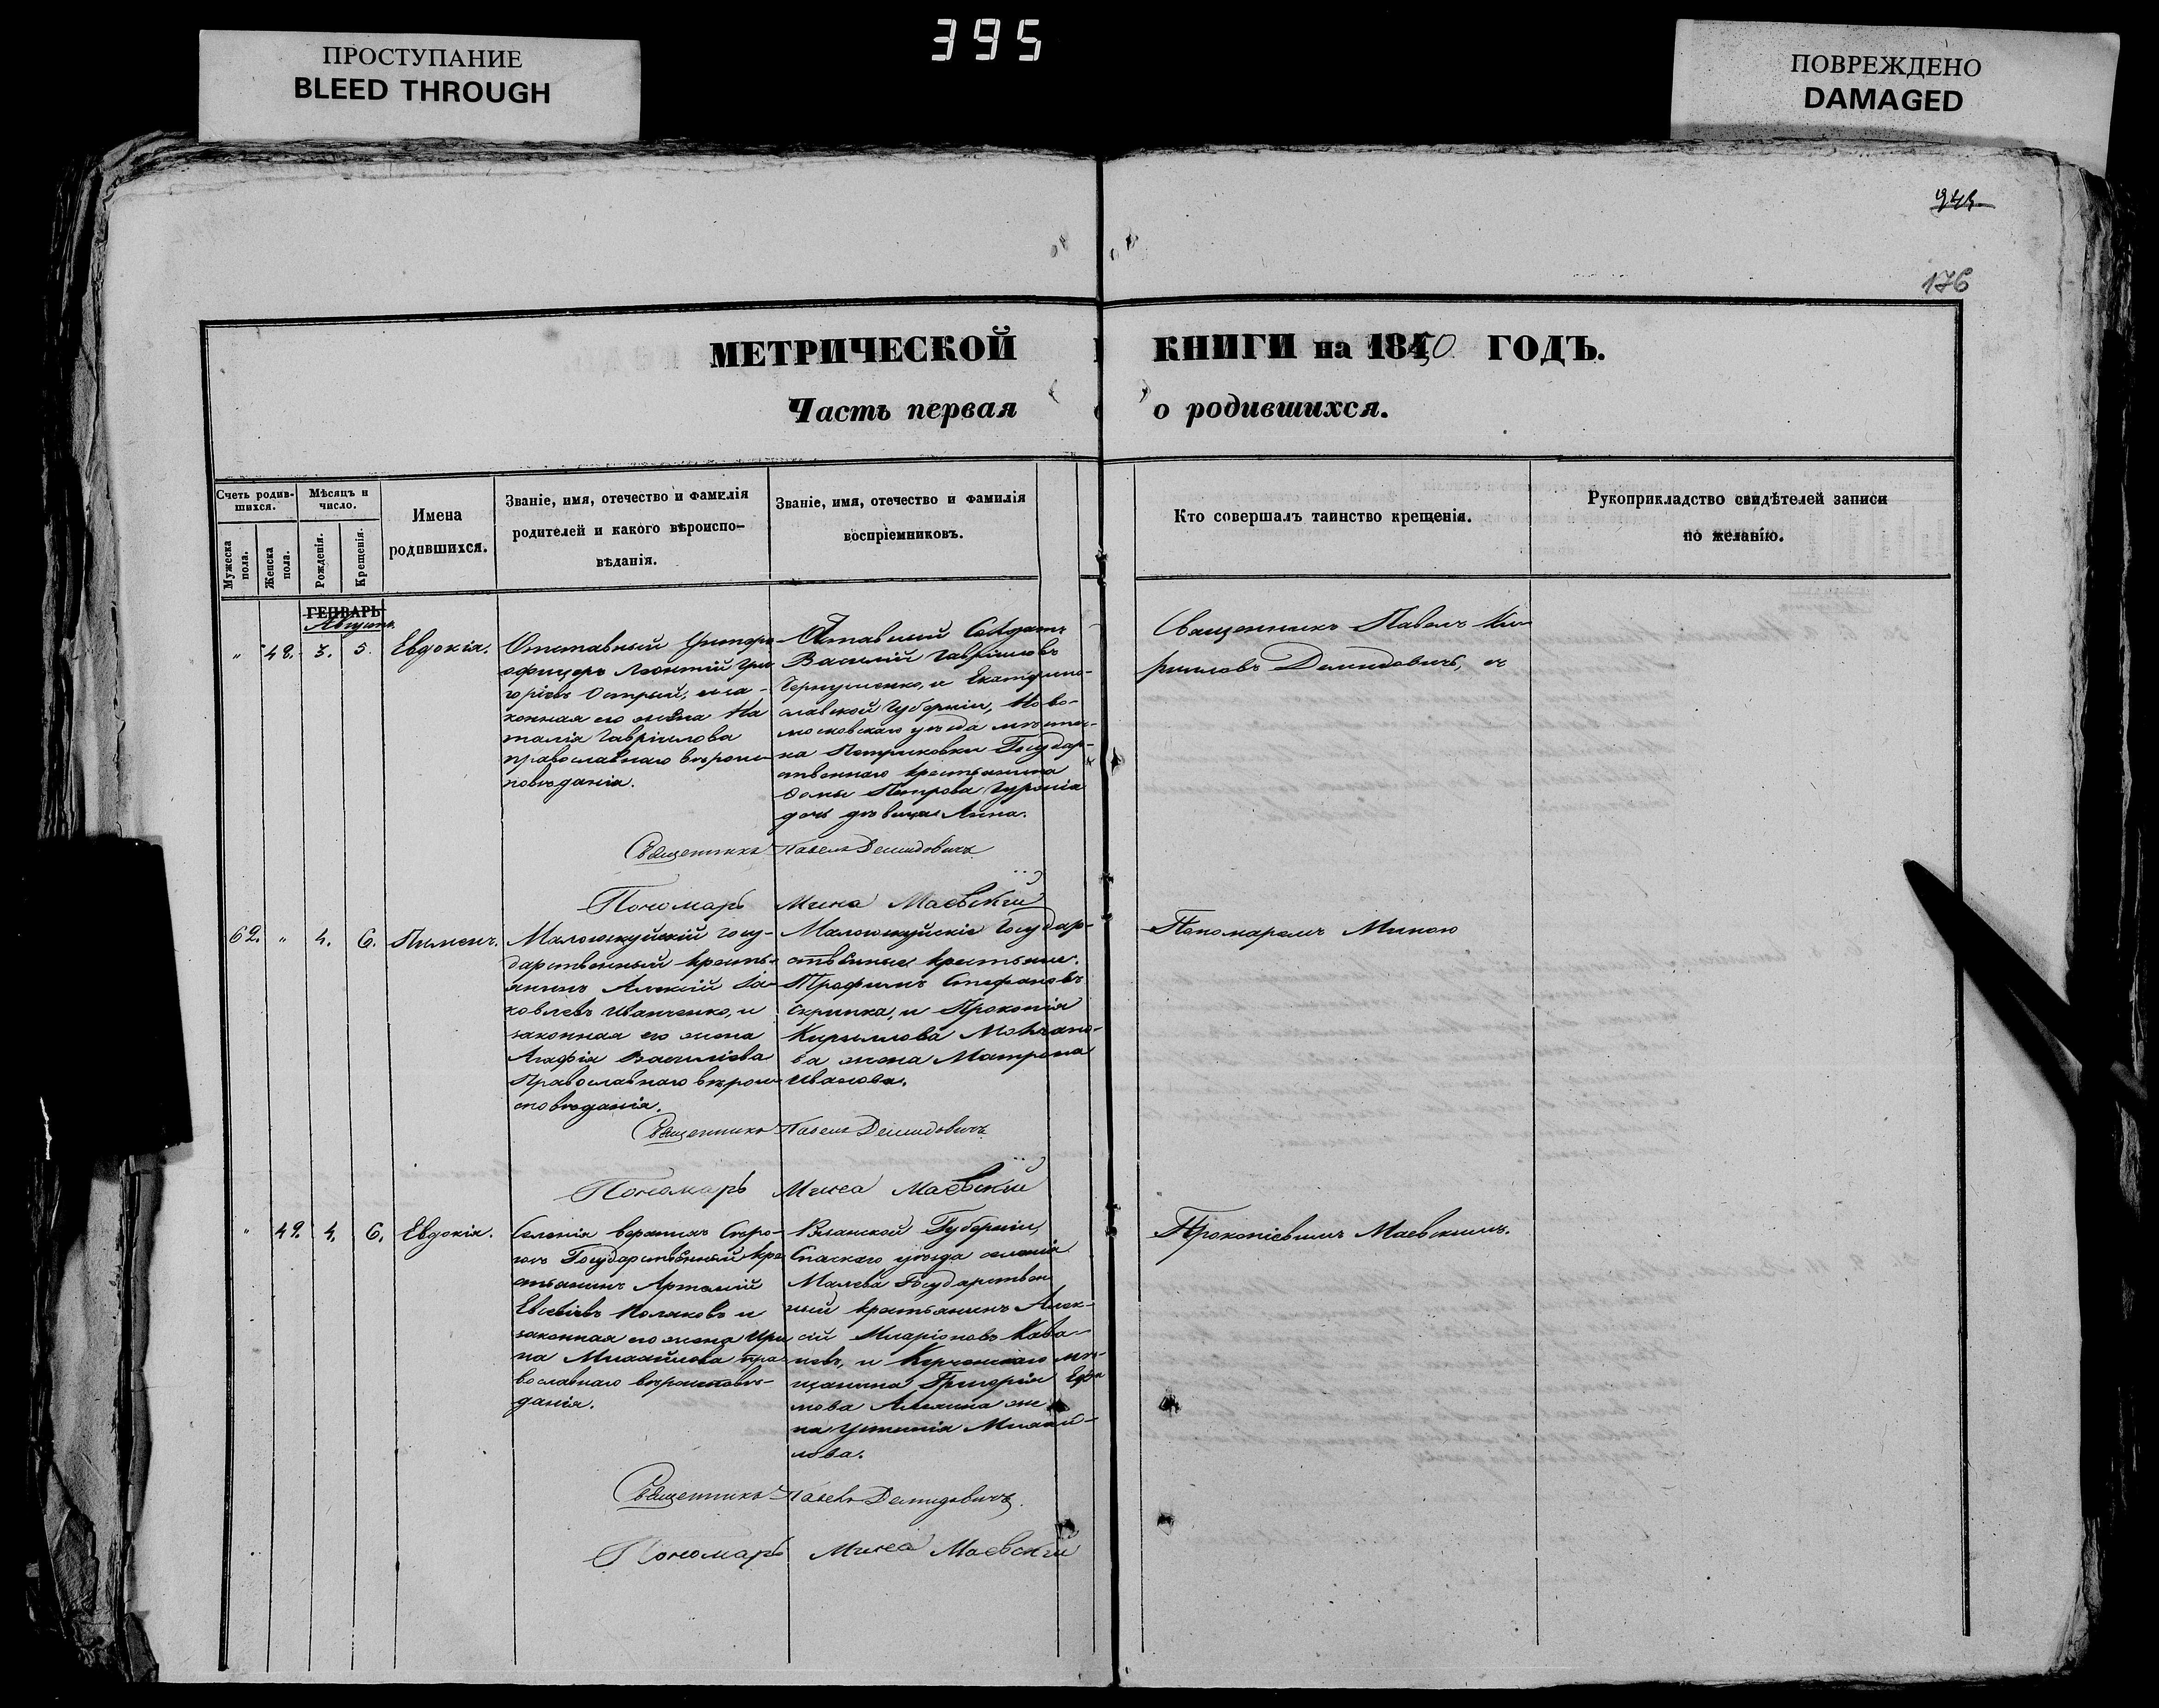 ПРОСТУПАНИЕ
BLEED THROUGH
395
ПОВРЕЖДЕНО
DAMAGED
176
МЕТРИЧЕСКОЙ КНИГИ на 1850 ГОДЪ.
Часть первая о родившихся.
Счетъ родив-
шихся.
Мужеска
пола.
Женска
пола.
Мѣсяцъ и
число.
Рожденія.
Крещенія.
Имена
родившихся.
Званіе, имя, отечество и фамилія
родителей и какого вѣроиспо-
вѣданія.
Званіе, имя, отечество и фамилія
воспріемниковъ.
Кто совершалъ таинство крещенія.
Рукоприкладство свидѣтелей записи
по желанію.
ГЕНВАРЬ
Августъ.
" 48. 3. 5. Евдокія.
Отставный Унтеръ
офицеръ Леонтій Гри
горіевъ Острый, и за-
конная его жена На
талія Гавріилова
православнаго вѣроис-
повѣданія.
Отставный Солдатъ
Василій Гавріиловъ
и Екатерино-
славской Губерніи, Ново-
московскаго уѣзда мѣстеч-
ка Петриковки Государ-
ственнаго крестьянина
Ѳомы Петрова
дочь дѣвица Анна.
Священникъ Павелъ Ки-
рилловъ Демидовичъ, съ
Священникъ Павелъ Демидовичъ
Пономарь Мина Маевскій
62. " 4. 6. Пименъ.
государственный крестья-
янинъ Алексій Іа-
ковлевъ Иванченко, и
законная его жена
Агафія Василіева
Православнаго вѣрои-
сповѣданія.
Государ-
ственные крестьяне.
Трофимъ Стефановъ
Скрипка, и Прокопія
Кириллова Молчано-
ва жена Матрона
Иванова.
Пономаремъ Миною
Священникъ Павелъ Демидовичъ
Пономарь Мина Маевскій
" 49. 4. 6. Евдокія.
Селенія
Государственный кре
стьянинъ Артемій
Евсевіевъ Поляковъ и
законная его жена Ири
на Михайлова пра-
вославнаго вѣроисповѣ-
данія.
Рязанской Губерніи,
Спаскаго уѣзда селенія
Государствен
ный крестьянинъ Алек-
сій Иларіоновъ
и Керченскаго мѣ-
щанина Григорія Ефи
мова же
на Устинія Михай-
лова.
Прокопіевымъ Маевскимъ.
Священникъ Павелъ Демидовичъ
Пономарь Мина Маевскій